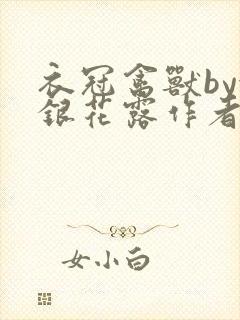 衣冠禽獸by
銀花露作者
女小白